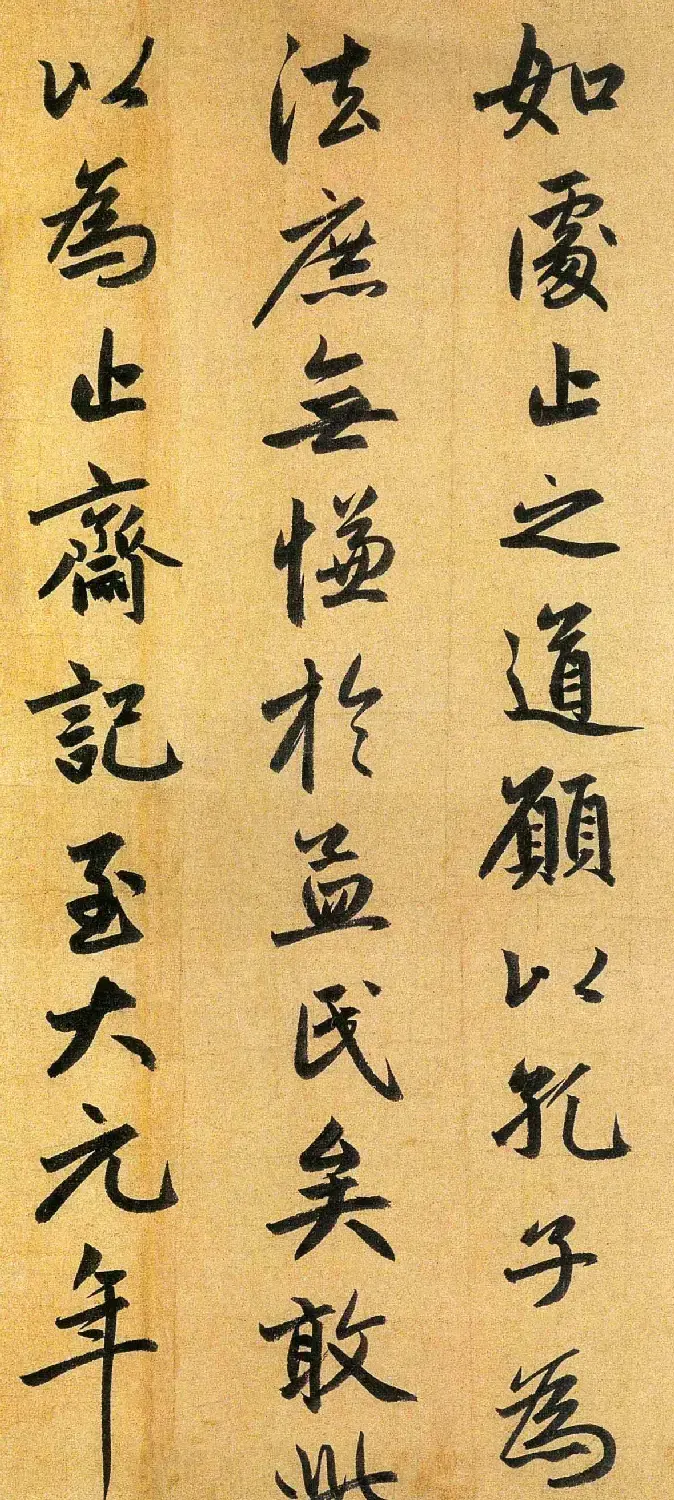 如處止之道願以孔子為
法庶無慊於益民矣敢
以為止齋記至大元年